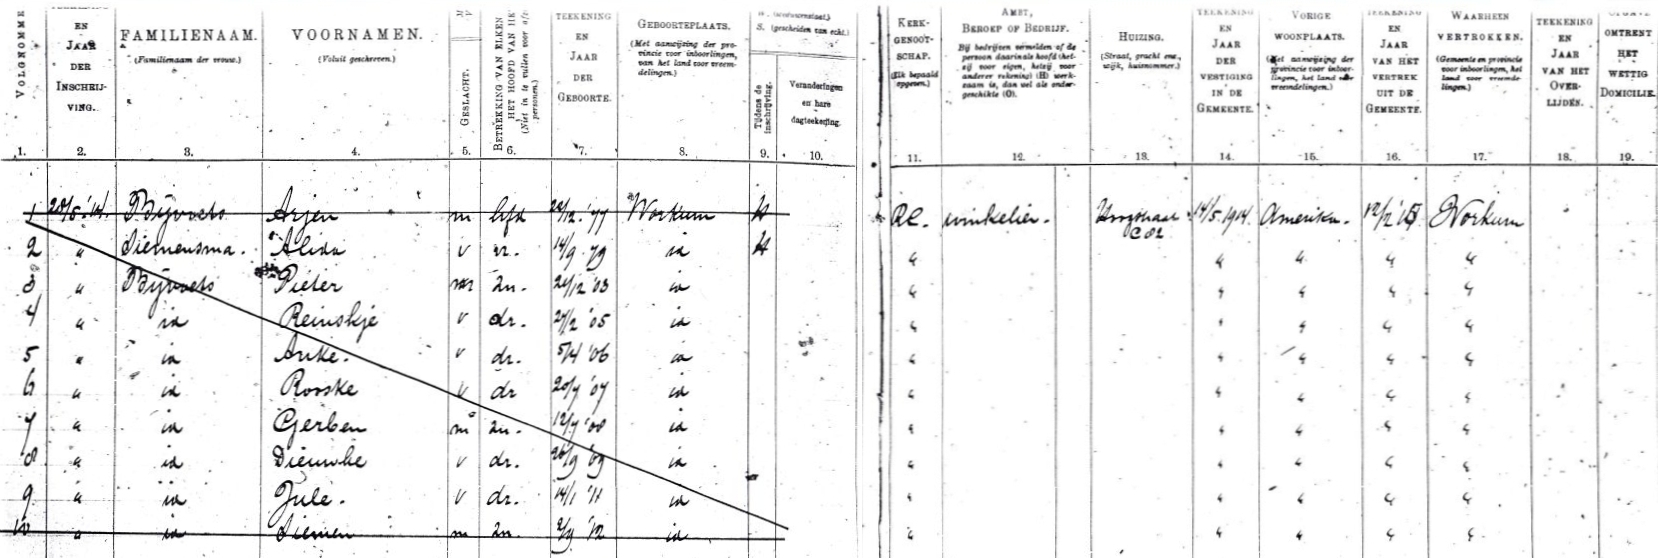 VOLGNOMME
TEEKENING EN JAAR DER INSCHRIJ- VING.
FAMILIENAAM. (Familienaam der vrouw.)
VOORNAMEN. (Voluit geschreven.)
GESLACHT.
BETREKKING VAN ELKEN HET HOOFD VAN HE (Niet in te vullen voor afz personen.)
TEEKENING EN JAAR DER GEBOORTE.
GEBOORTEPLAATS. (Met aanwijzing der pro- vincie voor inboorlingen, van het land voor vreem- delingen.)
S. (gescheiden van echt.)
Tijdens de inschrijving.
Veranderingen en hare dagteekening.
KERK- GENOOT- SCHAP. (Elk bepaald opgeven.)
AMBT, BEROEP OF BEDRIJF. Bij bedrijven vermelden of de persoon daarin als hoofd (het- zij voor eigen, hetzij voor anderer rekening) (H) werk- zaam is, dan wel als onder- geschikte (O).
HUIZING. (Straat, gracht enz., wijk, huisnummer.)
TEEKENING EN JAAR DER VESTIGING IN DE GEMEENTE.
VORIGE WOONPLAATS. (Met aanwijzing der provincie voor inboor- lingen, het land voor vreemdelingen.)
TEEKENING EN JAAR VAN HET VERTREK UIT DE GEMEENTE.
WAARHEEN VERTROKKEN. (Gemeente en provincie voor inboorlingen, het land voor vreemde- lingen.)
TEEKENING EN JAAR VAN HET OVER- LIJDEN.
OMTRENT HET WETTIG DOMICILIE.
1. 2. 3. 4. 5. 6. 7. 8. 9. 10. 11. 12. 13. 14. 15. 16. 17. 18. 19.
1 20/5 '14. Bijvoets Arjen m hfd '77 Workum H R.C. winkelier. Hoogstraat C 82 14/5 1914 Amerika. 12/2 '15 Workum
2 " Siemensma. Alida v vr. 14/9 '79 id H " " " " "
3 " Bijvoets Pieter m zn. 21/12 '03 id " " " " "
4 " id Reinskje v dr. 27/2 '05 id " " " " "
5 " id Anke. v dr. 5/4 '06 id " " " " "
6 " id Rooske v dr 20/7 '07 id " " " " "
7 " id Gerben m zn. 12/7 '08 id " " " " "
8 " id Dieuwke v dr. 26/9 '09 id " " " " "
9 " id Jule. v dr. 14/1 '11 id " " " " "
10 " id Siemen m zn. '12 id " " " " "